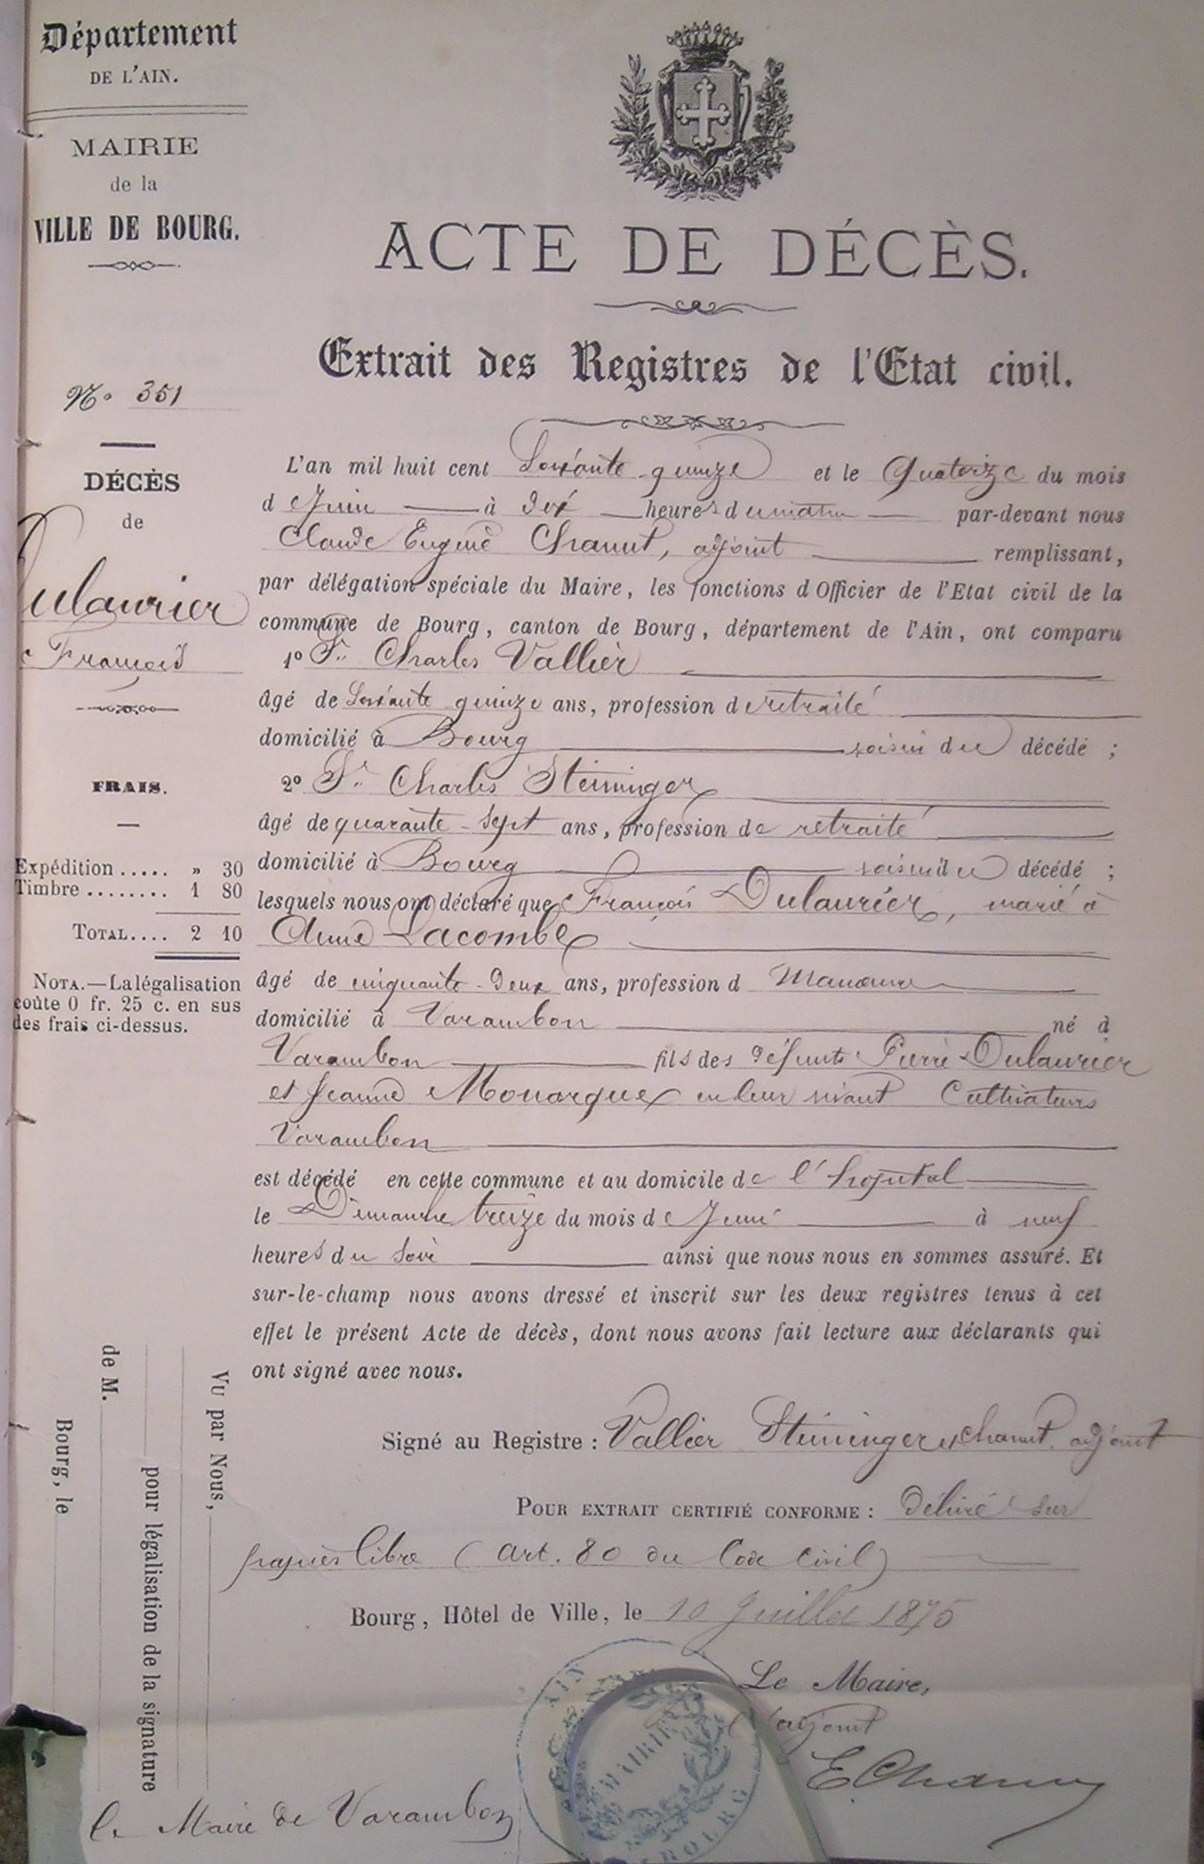 Département
DE L'AIN.
MAIRIE
de la
VILLE DE BOURG.
ACTE DE DÉCÈS.
Extrait des Registres de l'Etat civil.
N° 351
DÉCÈS
de
Dulaurier
François
FRAIS.
Expédition ..... » 30
Timbre ........ 1 80
TOTAL.... 2 10
NOTA.—La légalisation
coûte 0 fr. 25 c. en sus
des frais ci-dessus.
L'an mil huit cent Soixante quinze et le Quatorze du mois
de Juin à dix heures du matin par-devant nous
Claude Eugène Chanut, adjoint remplissant,
par délégation spéciale du Maire, les fonctions d'Officier de l'Etat civil de la
commune de Bourg, canton de Bourg, département de l'Ain, ont comparu
1° Sr. Charles Vallier
âgé de Soixante quinze ans, profession de retraité
domicilié à Bourg voisin du décédé ;
2° Sr. Charles Steininger
âgé de quarante-sept ans, profession de retraité
domicilié à Bourg voisin du décédé ;
lesquels nous ont déclaré que François Dulaurier, marié à
Anne Lacombe
âgé de cinquante-deux ans, profession d
domicilié à Varambon né à
Varambon fils des défunts Pierre Dulaurier
et Jeanne Monarque en leur vivant Cultivateurs
Varambon
est décédé en cette commune et au domicile de l'hopital
le Dimanche treize du mois de Juin à neuf
heures du soir ainsi que nous nous en sommes assuré. Et
sur-le-champ nous avons dressé et inscrit sur les deux registres tenus à cet
effet le présent Acte de décès, dont nous avons fait lecture aux déclarants qui
ont signé avec nous.
Signé au Registre : Vallier Steininger et Chanut adjoint
POUR EXTRAIT CERTIFIÉ CONFORME : Délivré sur
papier libre (art. 80 du Code Civil)
Bourg, Hôtel de Ville, le 10 Juillet 1875
Le Maire,
l'adjoint
E Chanut
Vu par Nous,
pour légalisation de la signature
de M.
Bourg, le
AIN
MAIRIE
BOURG
le Maire de Varambon